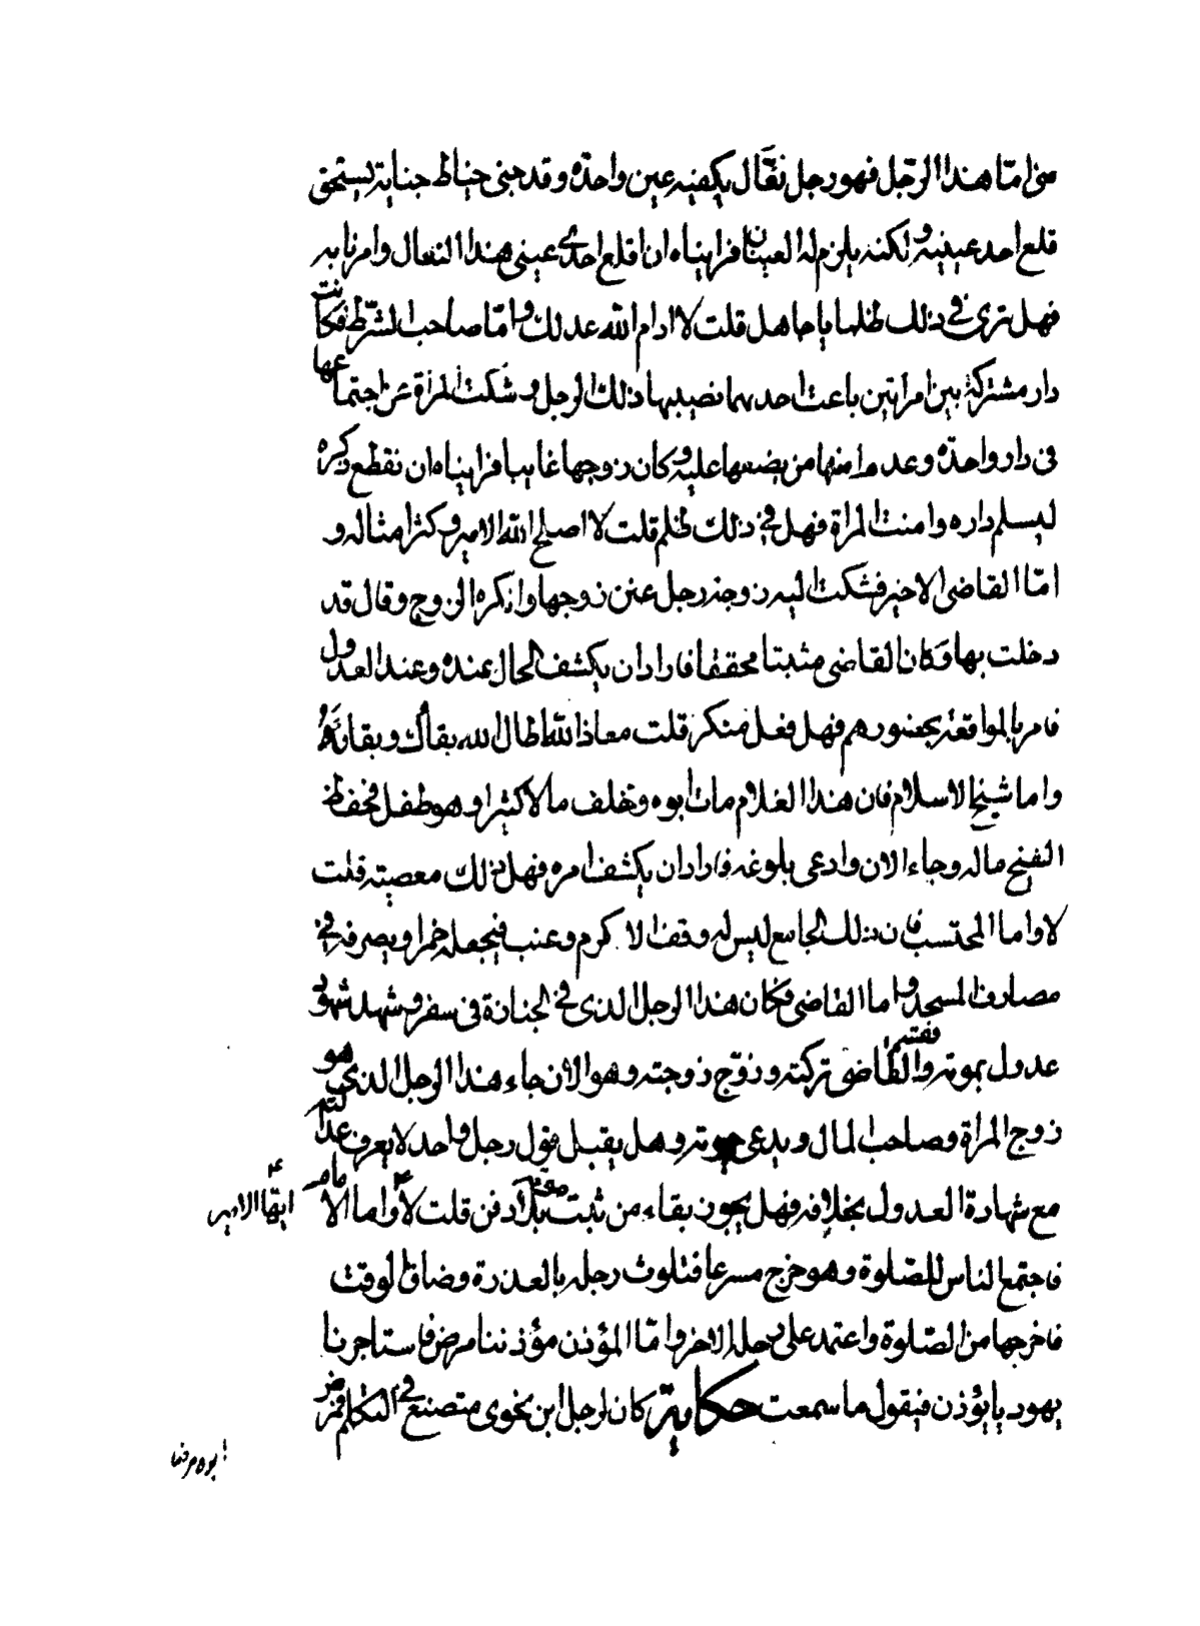 شئ امّا هذا الرّجل فهو رجل نقّال يكفيه عين واحدة وقد جنى خياط جناية يستحق
قلع احد عينيه ولكنه يلزم له العينان فراينا ان اقلع احدى عينى هذا النقال وامرنا به
فهل ترى فى ذلك ظلما يا جاهل قلت لا ادام الله عدلك وامّا صاحب الشرّط فكانت
دار مشتركة بين امراتين باعت احدىهما نصيبها ذلك الرجل وشكت المراة عن اجتماعها
فى دار واحدة وعدم امنها من بضعها عليه وكان زوجها غايبا فراينا ان نقطع ذكره
ليسلم داره وامنت المراة فهل فى ذلك ظلم قلت لا اصلح الله الامير وكثر امثاله و
امّا القاضى الاخير فشكت اليه زوجة رجل عنن زوجها وانكره الزوج وقال قد
دخلت بها وكان القاضى مثبتا محققا فاراد ان يكشف الحال عنده وعند العدول
فامر بالمواقعة بحضورهم فهل فعل منكر قلت معاذ الله اطال الله بقاك وبقائه
واما شيخ الاسلام فان هذا الغلام مات ابوه وتخلف مالا كثيرا وهو طفل فحفظ
الشيخ ماله وجاء الان وادعى بلوغه فاراد ان يكشف امره فهل ذلك معصية قلت
لا واما المحتسب فان ذلك الجامع ليس له وقف الا كرم وعنب فيجعله خمرا ويصرفه فى
مصارف المسجد واما القاضى فكان هذا الرجل الذى فى الجنازة فى سفر وشهد شهود
عدول بموته والقاضى فقسم تركته وزوّج زوجته وهو الان جاء هذا الرجل الذى هو
زوج المراة وصاحب المال ويدعى حيوته وهل يقبل قول رجل واحد لا يعرف عدالته
مع شهادة العدول بخلافه فهل يجوز بقاء من ثبت موته بلا دفن قلت لا واما الامام ايها الامير
فاجتمع الناس للصّلوة وهو خرج مسرعا فتلوث رجله بالعذرة وضاق الوقت
فاخرجها من الصّلوة واعتمد على رجله الاخر وامّا المؤذن مؤذننا مرض فاستاجرنا
يهوديا يؤذن فيقول ما سمعت حكاية كان لرجل ابن نحوى متصنع فى التكلم فمرض
ابوه مرضا